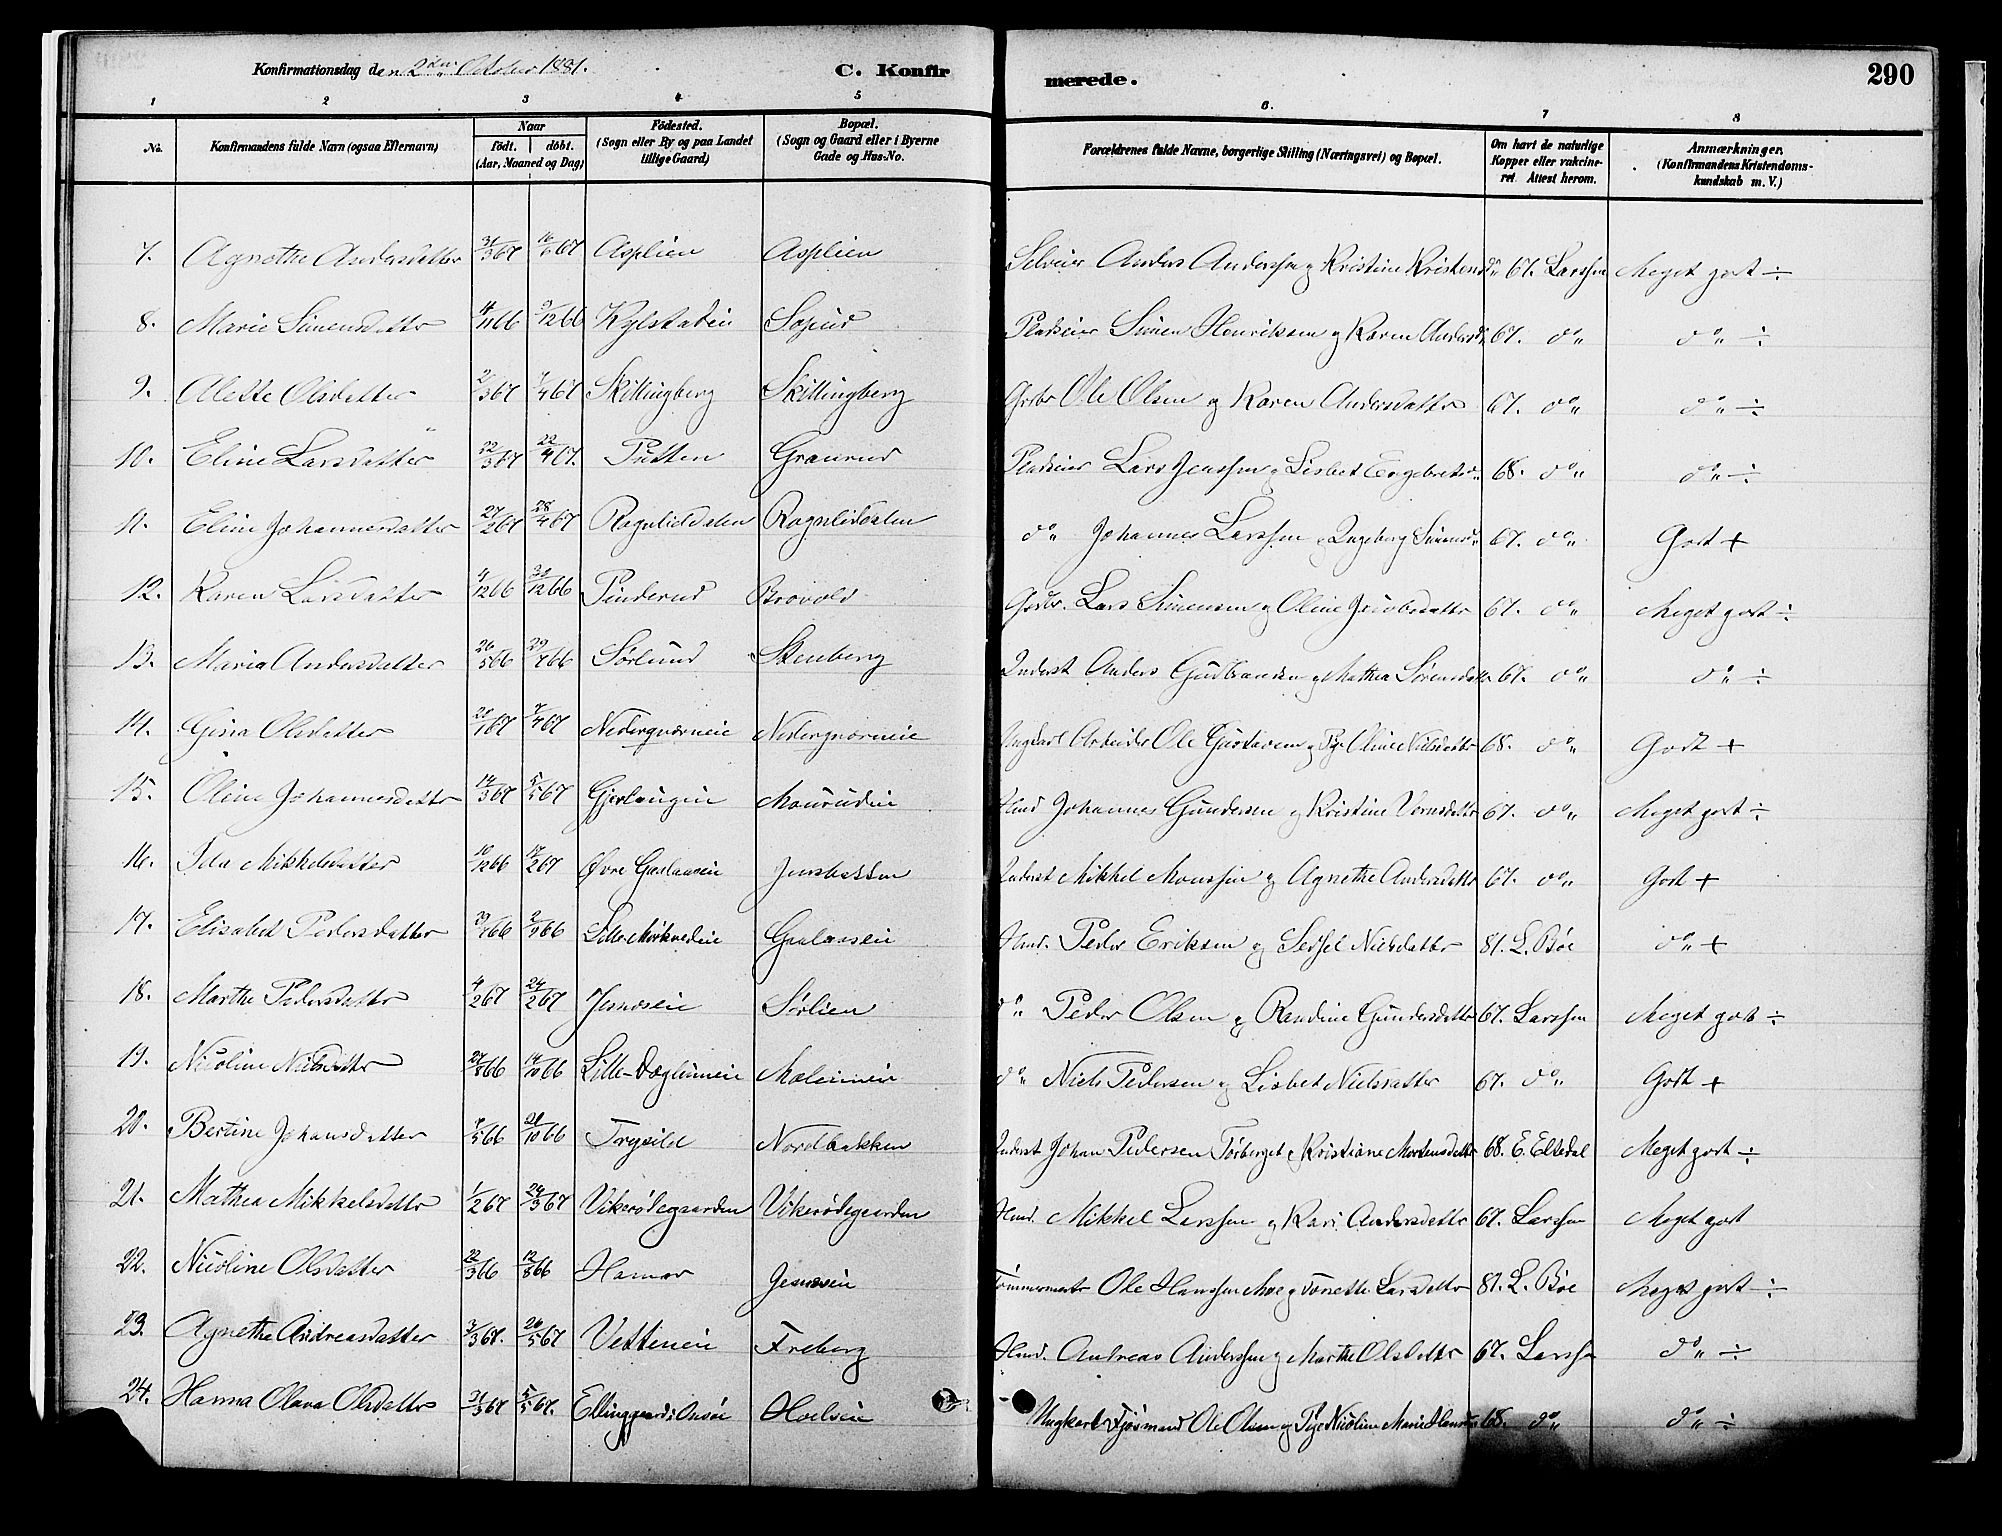 Konfirmationsdag den 2den October 1881. C. Konfirmerede. 290
1 2 3 4 5 6. 7 8
No. Konfirmandens fulde Navn (ogsaa Efternavn) Naar født. døbt. (Aar, Maaned og Dag) Fødested. (Sogn eller By og paa Landet tillige Gaard) Bopæl. (Sogn og Gaard eller i Byerne Gade og Hus-No. Forældrenes fulde Navne, borgerlige Stilling (Næringsvei) og Bopæl. Om havt de naturlige Kopper eller vakcineret. Attest herom. Anmærkninger. (Konfirmandens Kristendomskundskab m. V.)
7. Agnethe Andersdatter 31/3 67 16/6 67 Asplien Asplien Selveier Anders Anderssen og Kristine Kristensd 67. Larssen Meget godt ÷
8. Marie Simensdatter 4/11 66 9/12 66 Kylstadeie Sopud Pladseier Simen Henriksen og Karen Andersd 67. do " do " ÷
9. Alette Olsdatter 2/3 67 7/4 67 Skillingberg Skillingberg Grbr Ole Olsen og Karen Andersdatter 67. do " do " ÷
10. Eline Larsdatter 22/3 67 22/4 67. Putten Graurud Pladseier Lars Jenssen og Lisbet Engebretsd " 68. do " do " ÷
11. Eline Johannesdatter 27/2 67 28/4 67 Ragnliddalen Ragnliddalen do " Johannes Larssen og Ingeborg Simensd " 67. do " Godt +
12. Karen Larsdatter 4/12 66 30/12 66 Pinderud Brovold Gaardbr. Lars Simensen og Oline Jacobsdatter 67. do " Meget godt ÷
13. Maria Andersdatter 26/5 66 29/7 66 Sørlund Stenberg Inderst Anders Gudbrandsen og Mathea Sørensdatter 67. do " do " ÷
14. Gina Olsdatter 20/1 67 7/4 67 Nedergvarneie Nedergvarneie Ungkarl Arbeider Ole Gustavsen og Pige Oline Nilsdatter 68. do " Godt +
15. Oline Johannesdatter 14/3 67 5/5 67 Gjerlaugeie Maurudeie Husmd Johannes Gundersen og Kristine Vernsdatter 67. do " Meget godt ÷
16. Ida Mikkelsdatter 10/12 66 17/2 67 Øvre Gaalaaseie Jensbakken Inderst Mikkel Monssen og Agnethe Andersdatter 67. do " Godt +
17. Elisabet Pedersdatter 29/7 66 2/9 66 Lille Mørkvedeie Gaalaaseie Husmd. Peder Eriksen og Sersel Nielsdatter 81. L. Bøe do " +
18. Marthe Pedersdatter 4/2 67 24/2 67 Jesnæseie Sørlien do " Peder Olsen og Randine Gundersdatter 67. Larssen Meget godt ÷
19. Nicoline Nielsdatter 27/8 66 14/10 66 Lille-Dæglumeie Mælumeie do " Niels Pedersen og Lisbet Nielsdatter 67. do " Godt +
20. Bertine Johansdatter 7/5 66 21/10 66 Trysild Nordbakken Inderst Johan Pedersen Tørberget og Kristiane Mortensdatter 68. E. Eltedal Meget godt ÷
21. Mathea Mikkelsdatter 1/2 67 24/3 67 Vikerødegaarden Vikerødegaarden Husmd. Mikkel Larssen og Kari Andersdatter 67. Larssen Meget godt
22. Nicoline Olsdatter 22/3 66 12/8 66 Hamar Jesnæseie Tømmermester Ole Hanssen Moe og Tonette Larsdatter 81. L. Bøe Meget godt ÷
23. Agnethe Andreasdatter 3/3 67. 26/5 67 Vetteneie Freberg Husmd. Andreas Anderssen og Marthe Olsdatter 67. Larssen do " ÷
24. Hanna Olava Olsdatter 31/3 67 5/5 67. Ellinggaard i Onsøe Hoelseie Ungkarl Fjøsmand Ole Olsen og Pige Nicoline Marie 68. do " do " ÷